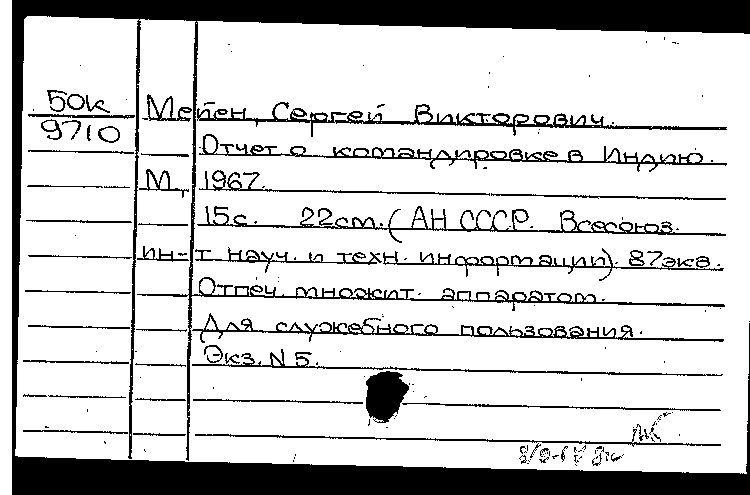 50к
9710
Мейен, Сергей Викторович.
Отчет о командировке в Индию.
М, 1967.
15с. 22cm. (АН СССР. Всесоюз.
ин-т науч. и техн. информации). 87экз.
Отпеч. множит. аппаратом.
Для служебного пользования.
Экз. N 5.